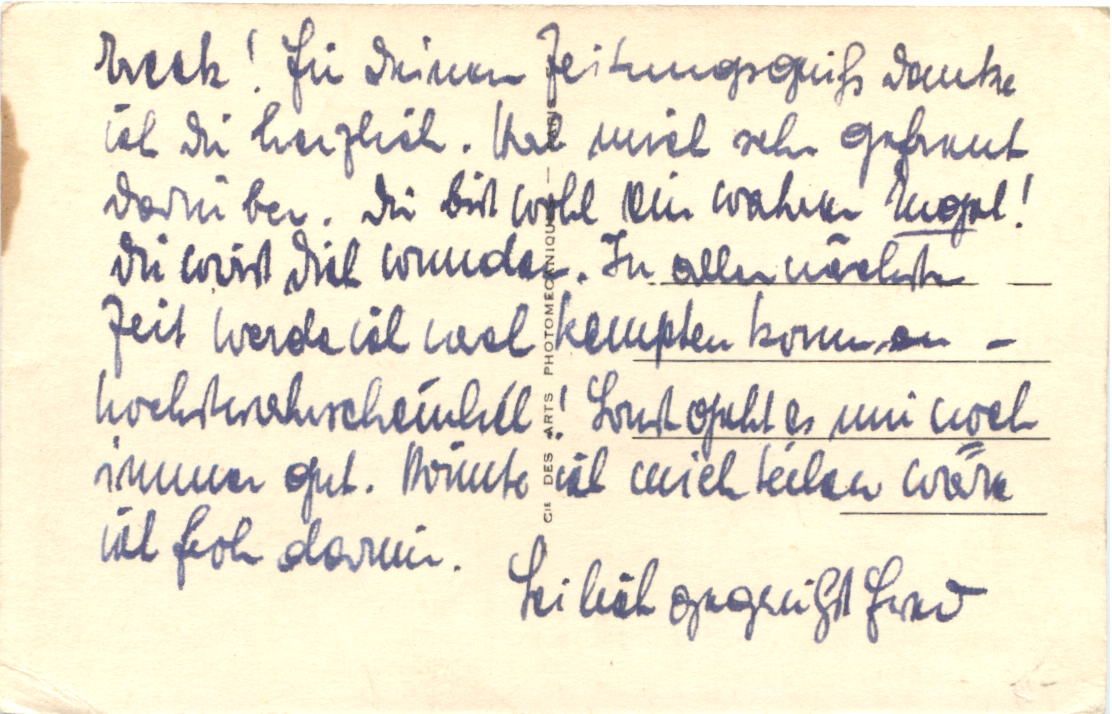 ! Für Deinen Zeitungsgruß danke
ich Dir herzlich. Hat mich sehr gefreut
darüber. Du bist wohl ein wahrer Engel!
Du wirst Dich wundern. In aller nächster
Zeit werde ich nach Kempten kommen –
höchstwahrscheinlich! Sonst geht es mir noch
immer gut. Könnte ich mich teilen wäre
ich froh darum.
Sei lieb gegrüßt
CIE DES ARTS PHOTOMECANIQUES — PARIS